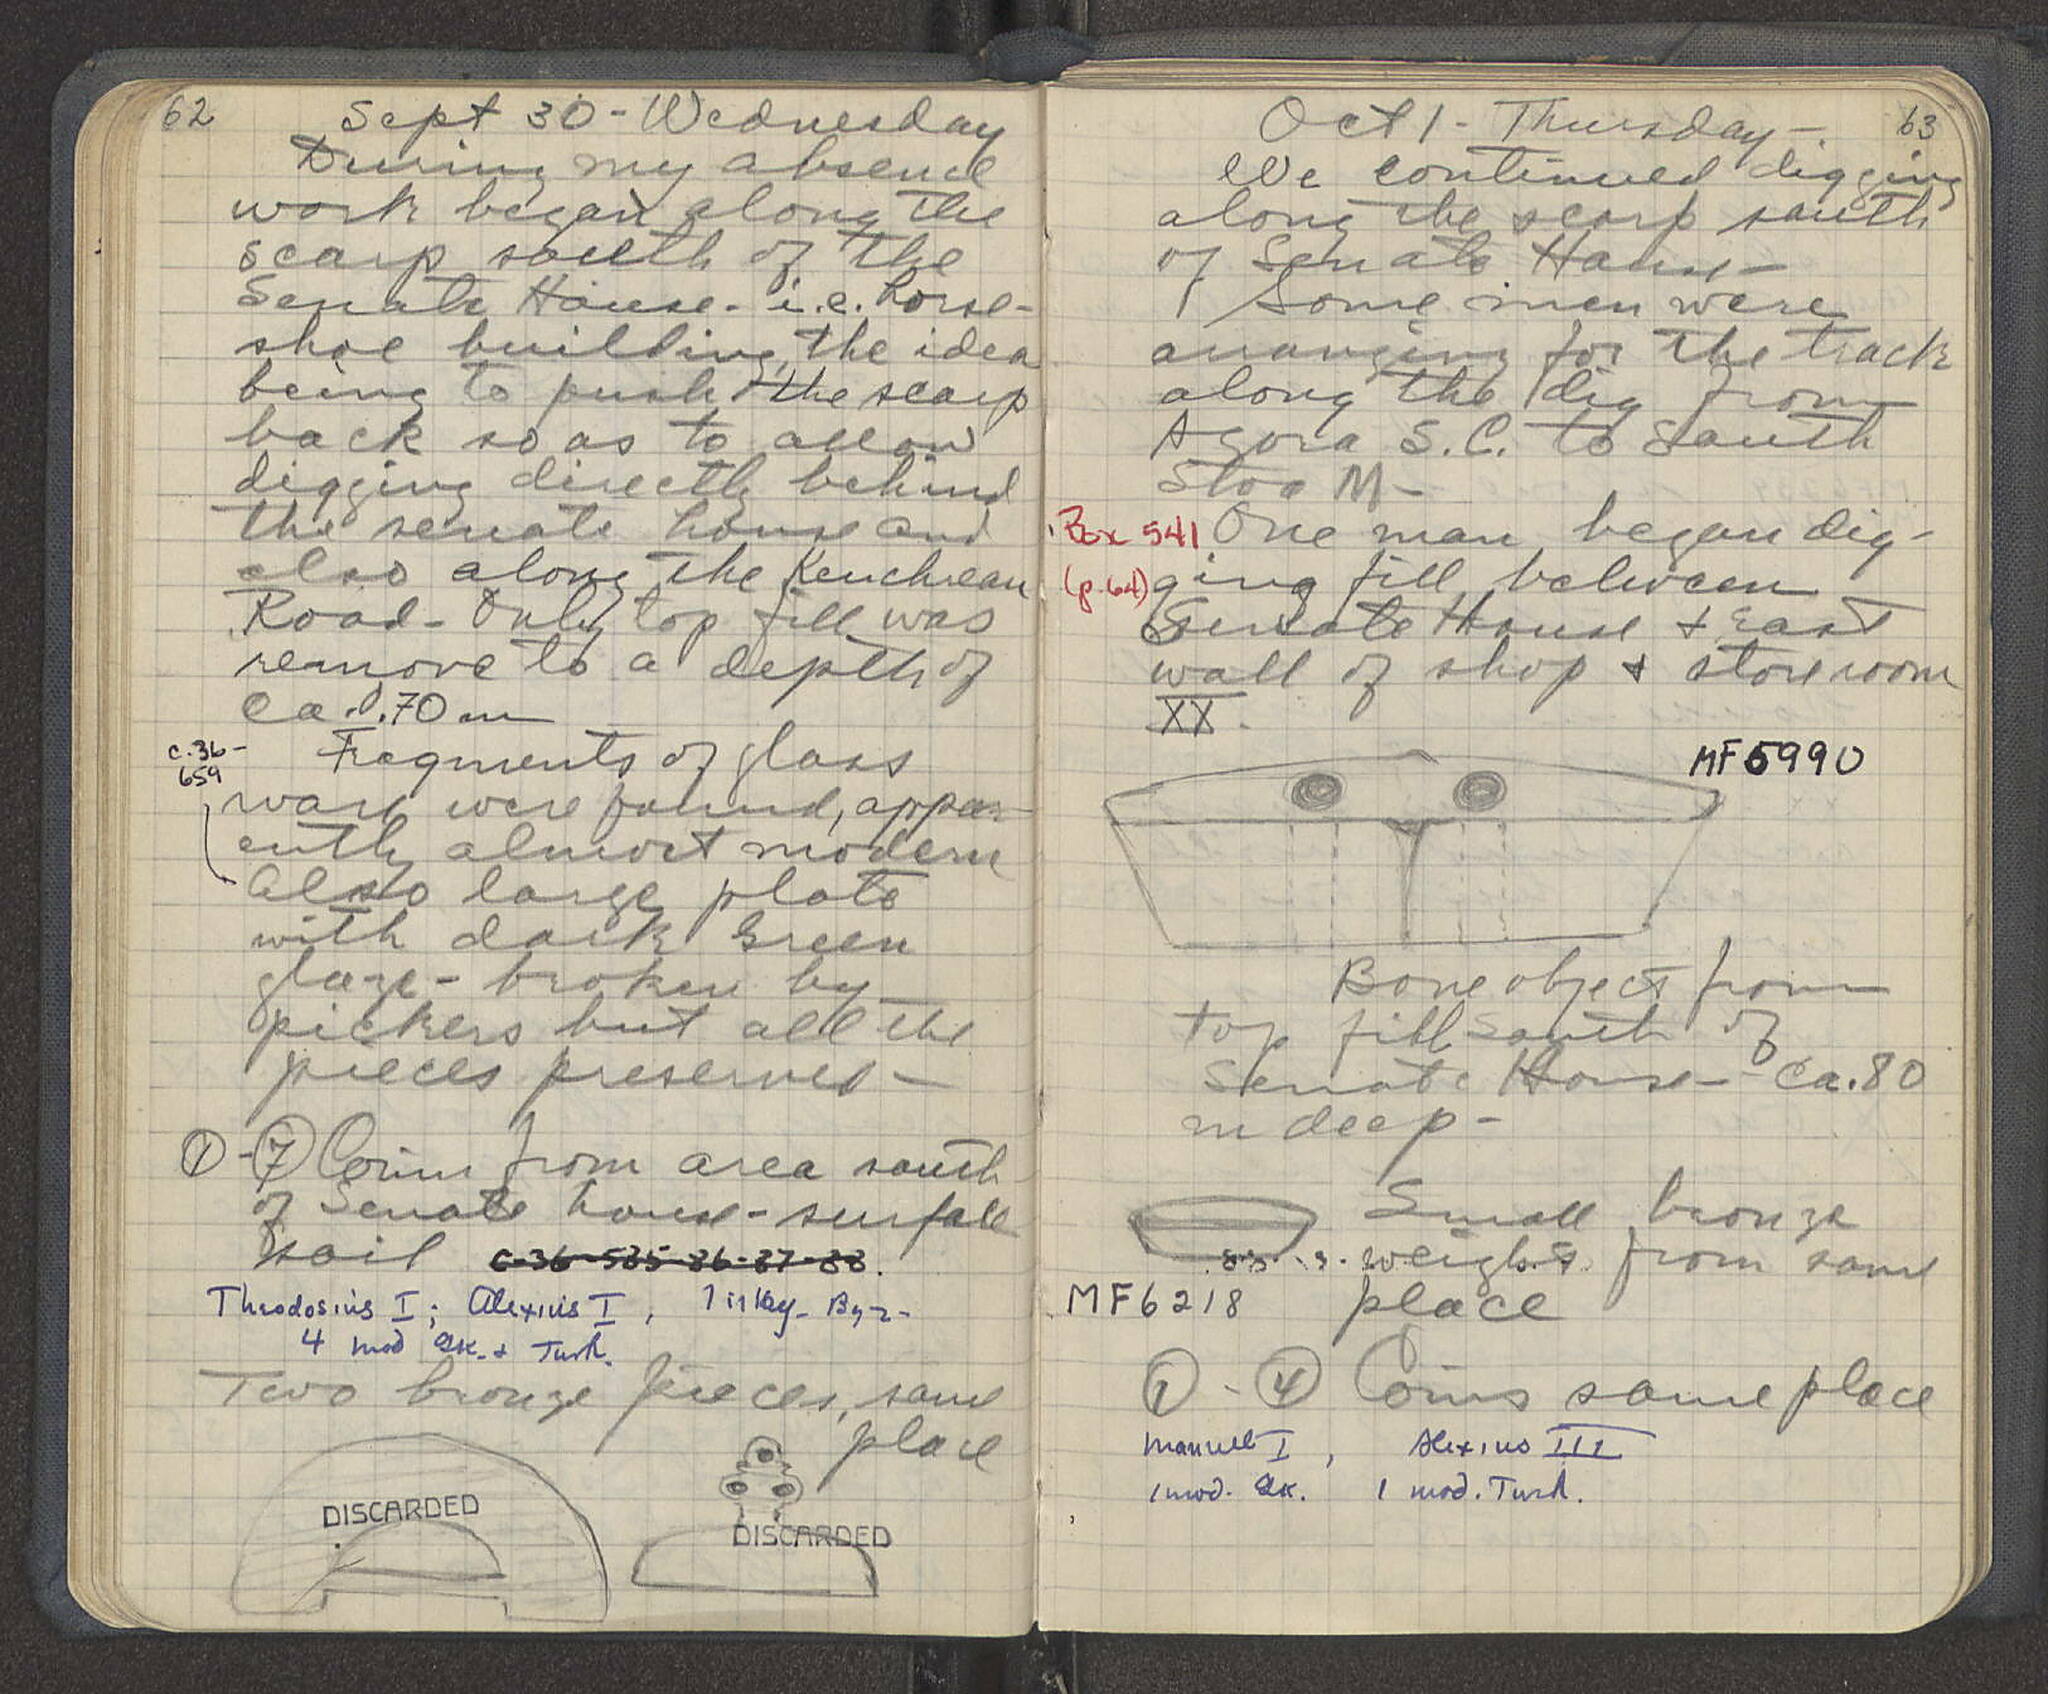 62
Sept 30 - Wednesday
During my absence
work began along the
scarp south of the
Senate House - i.e. horse-
shoe building, the idea
being to push the scarp
back so as to allow
digging directly behind
the senate house and
also along the Kenchrean
Road - Only top fill was
remove to a depth of
ca. 0.70 m
c.36-
659
Fragments of glass
ware were found, appar-
ently almost modern
Also large plate
with dark green
glaze - broken by
pickers but all the
pieces preserved -
① - ⑦ Coins from area south
of Senate house - surface
soil c-36-585-86-87-88.
Theodosius I; Alexius I, 1 illeg. Byz-
4 mod Gk. + Turk.
Two bronze pieces, same
place
DISCARDED
DISCARDED
63
Oct 1 - Thursday -
We continued digging
along the scarp south
of Senate House -
Some men were
arranging for the track
along the dig from
Agora S.C. to South
Stoa M -
Box 541
(p. 64)
One man began dig-
ging fill between
Senate House + East
wall of shop + storeroom
XX.
MF 5990
Bone object from
top fill south of
Senate House - ca. 80
m deep -
Small bronze
weight from same
place
MF 6218
① - ④ Coins same place
Manuel I, Alexius III
1 mod. Gk. 1 mod. Turk.